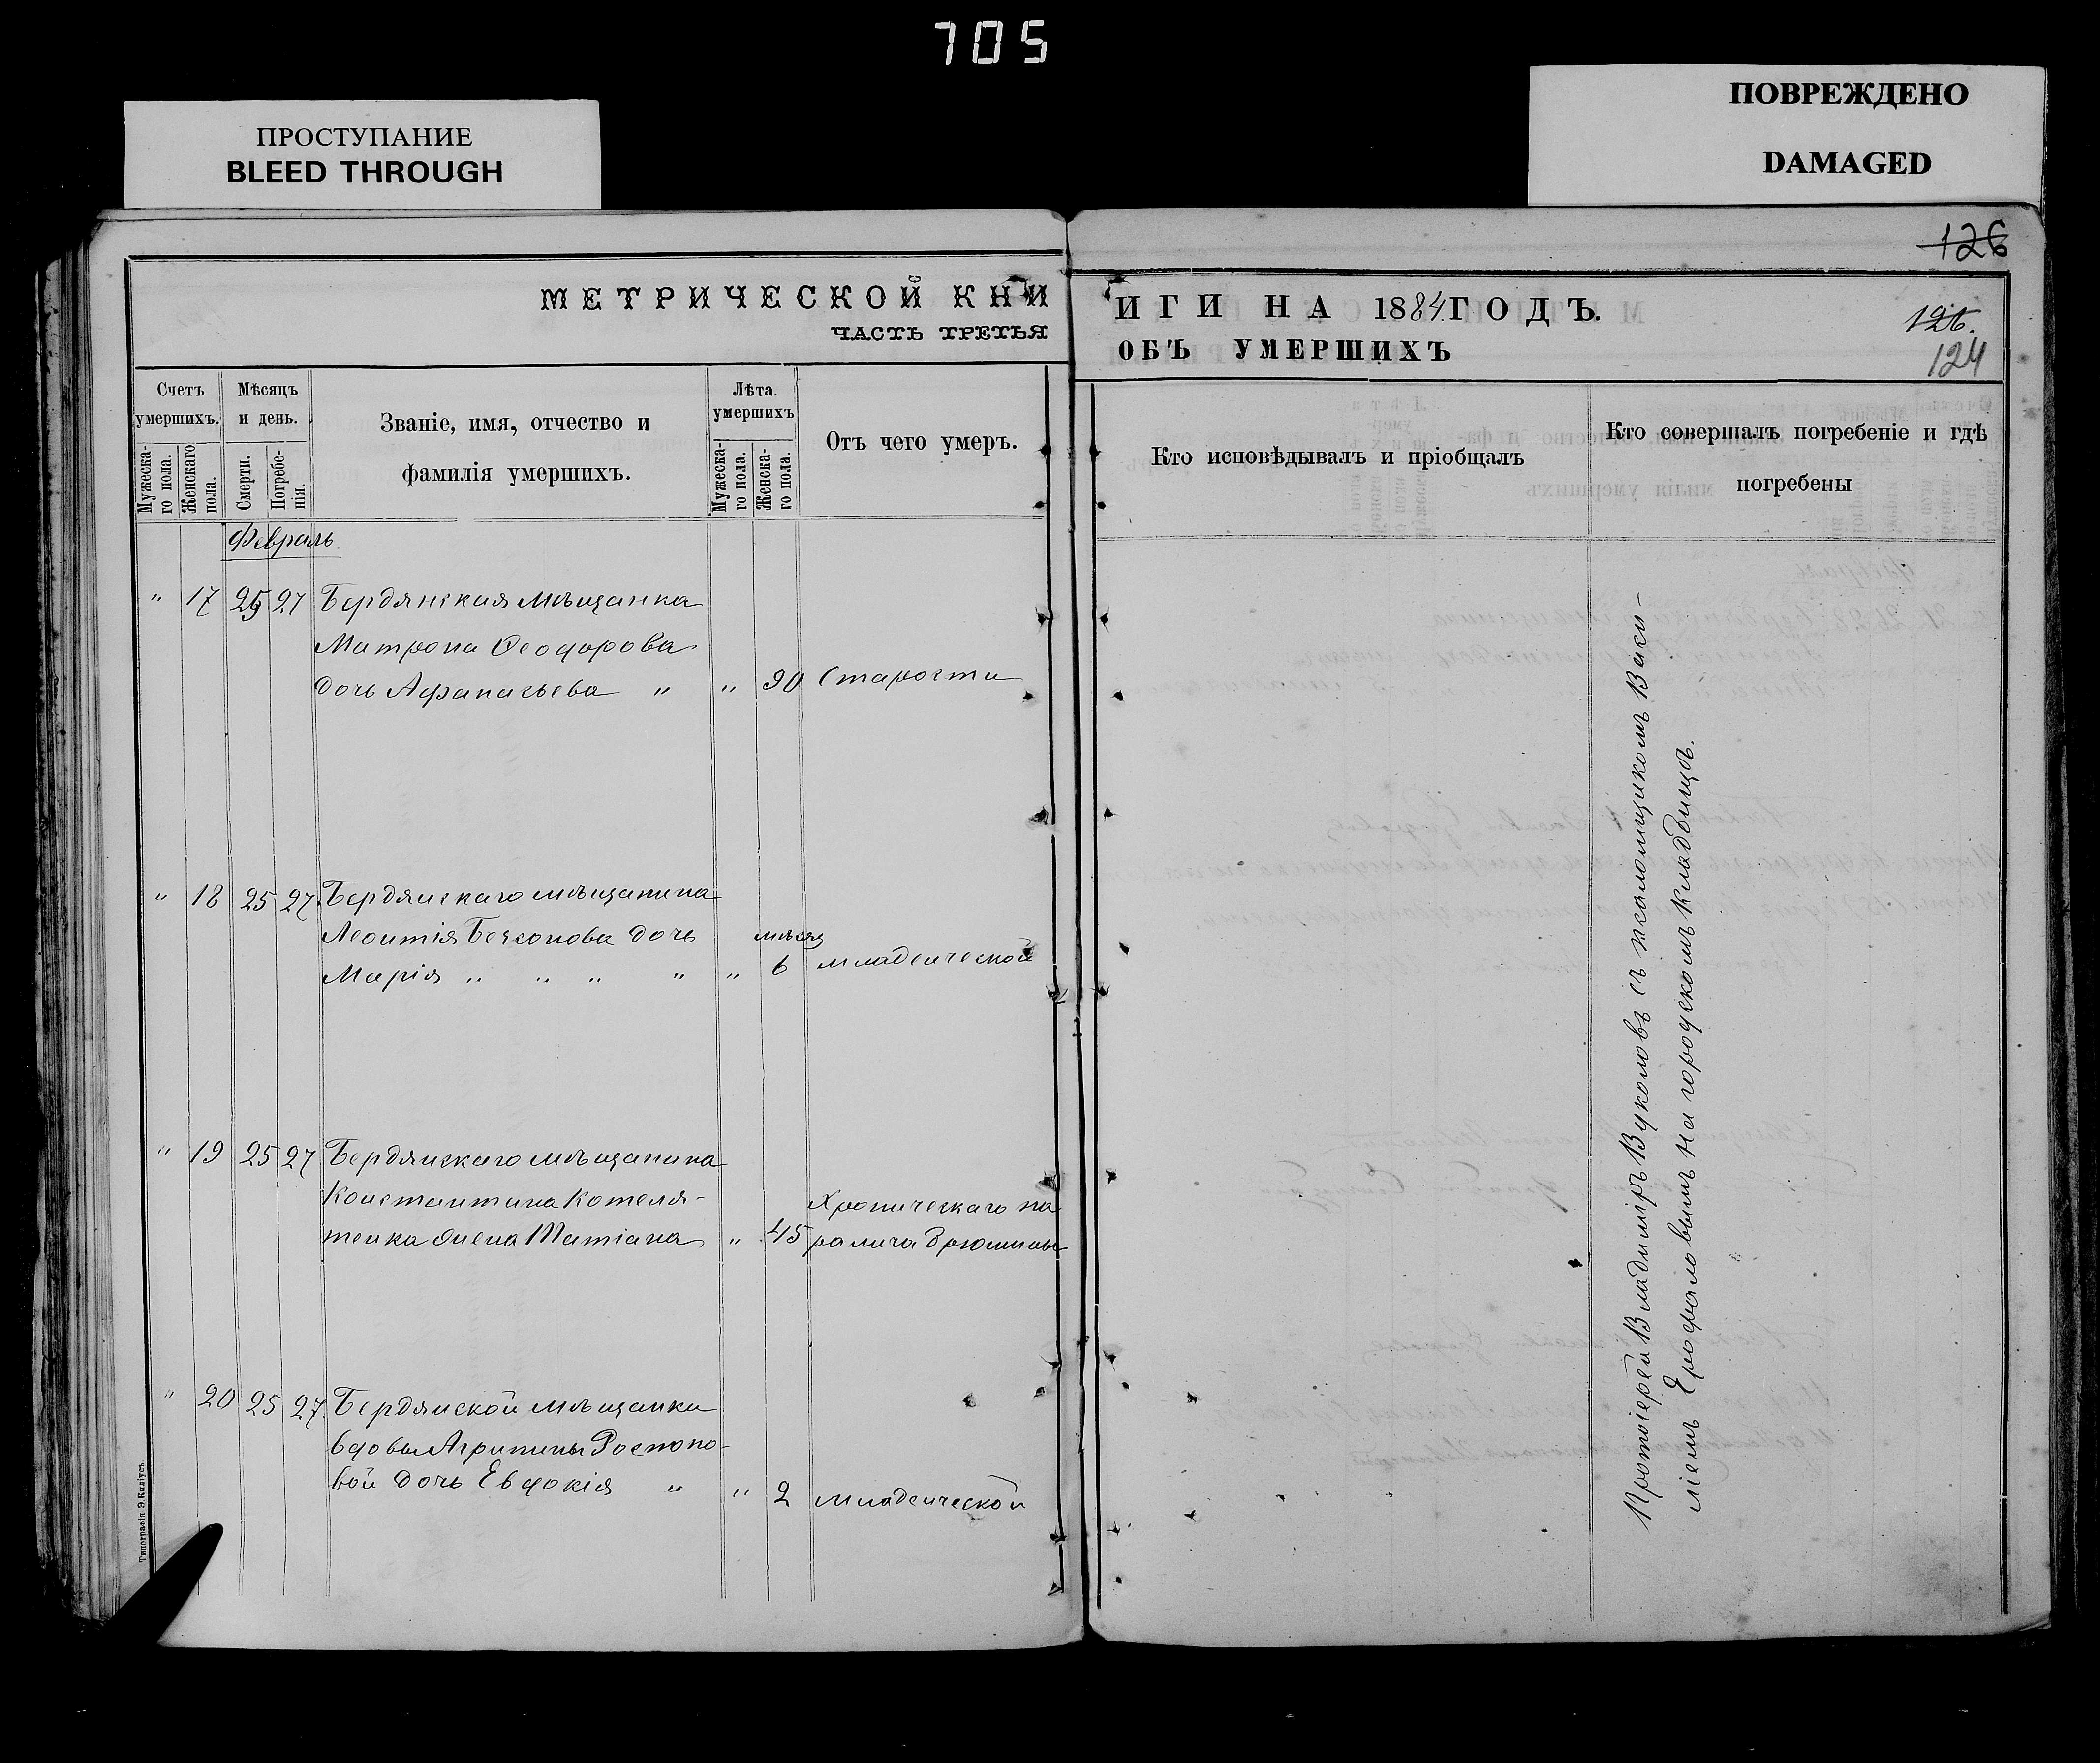 705
ПРОСТУПАНИЕ
BLEED THROUGH
ПОВРЕЖДЕНО
DAMAGED
126
МЕТРИЧЕСКОЙ КНИ
ЧАСТЬ ТРЕТЬЯ
ИГИ НА 1884 ГОДЪ.
ОБЪ УМЕРШИХЪ
126.
124
Счетъ умершихъ.
Мужеска-го пола.
Женскаго пола.
Мѣсяцъ и день.
Смерти.
Погребе-нія.
Званіе, имя, отчество и
фамилія умершихъ.
Лѣта умершихъ
Мужеска-го пола.
Женска-го пола.
Отъ чего умеръ.
Кто исповѣдывалъ и пріобщалъ
Кто совершалъ погребеніе и гдѣ
погребены
Февраль
" 17 25 27 Бердянская мѣщанка
Матрона Ѳеодорова
дочь Афанасьева " " 90 Старости
" 18 25 27 Бердянскаго мѣщанина
Леонтія дочь мѣсяц
Марія " " " " " 6 младенческой
" 19 25 27 Бердянскаго мѣщанина
Константина Котеля-
тенка жена Татіана " 45
Хроническаго па
ралича брюшины
" 20 25 27 Бердянской мѣщанки
вдовы Агрипины Роспопо-
вой дочь Евдокія " " 2 младенческой
Протоіерей Владиміръ Вуколовъ съ псаломщикомъ Васи-
ліемъ Ерофаловымъ на городскомъ кладбищѣ.
Типографія Э. Килiусъ